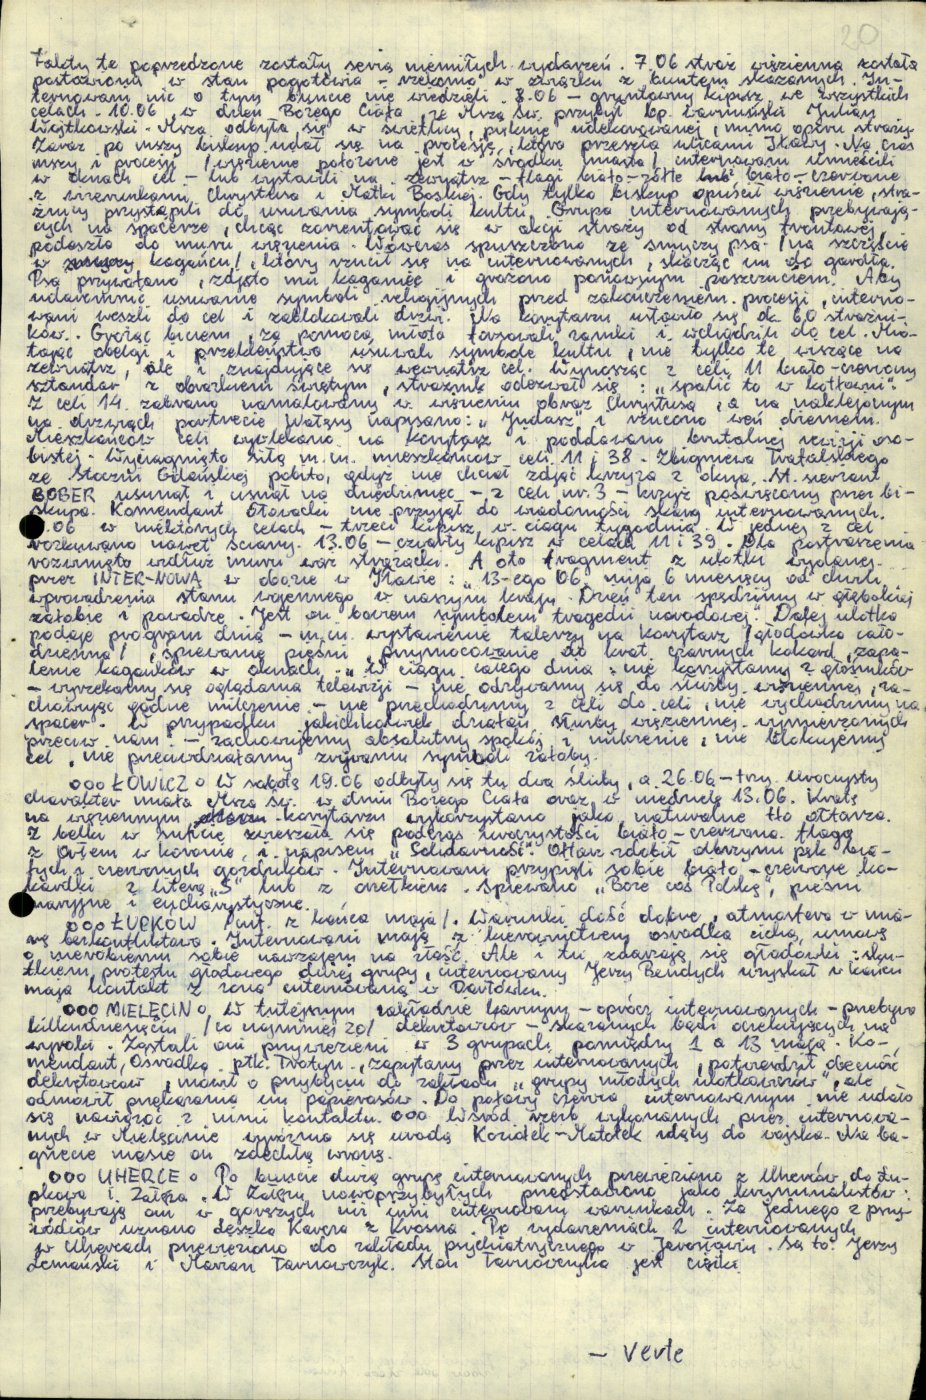 20
Fakty te poprzedzone zostały serią niemiłych wydarzeń. 7.06 straż więzienna została
postawiona w stan pogotowia – rzekomo w związku z buntem skazanych. In-
ternowani nic o tym buncie nie wiedzieli. 8.06 – gruntowny kipisz we wszystkich
celach. 10.06, w dzień Bożego Ciała, ze Mszą św. przybył bp. warmiński Julian
Wojtkowski. Msza odbyła się w świetlicy, pięknie udekorowanej, mimo oporu straży.
Zaraz po mszy biskup udał się na procesję, która przeszła ulicami Iławy. Na czas
mszy i procesji /więzienie położone jest w środku miasta/ internowani umieścili
w oknach cel – lub wystawili na zewnątrz – flagi biało-żółte lub biało-czerwone
z wizerunkami Chrystusa i Matki Boskiej. Gdy tylko biskup opuścił więzienie, stra-
żnicy przystąpili do usuwania symboli kultu. Grupa internowanych przebywają-
cych na spacerze, chcąc zorientować się w akcji straży od strony frontowej,
podeszła do muru więzienia. Wówczas spuszczono ze smyczy psa /na szczęście
w kagańcu/, który rzucił się na internowanych, skacząc im do gardła.
Psa przywołano, zdjęto mu kaganiec i grożono ponownym poszczuciem. Aby
udaremnić usuwanie symboli religijnych przed zakończeniem procesji, interno-
wani weszli do cel i zablokowali drzwi. Na korytarzu ustawiło się ok. 60 strażni-
ków. Grożąc biciem, za pomocą młota forsowali zamki i wchodzili do cel. Mio-
tając obelgi i przekleństwa usuwali symbole kultu, nie tylko te wiszące na
zewnątrz, ale i znajdujące się wewnątrz cel. Wynosząc z celi 11 biało-czerwony
sztandar z obrazkiem świętym, strażnik odezwał się: „spalić to w kotłowni".
Z celi 14 zabrano namalowany w więzieniu obraz Chrystusa, a na naklejonym
na drzwiach portrecie Wałęsy napisano: „Judasz" i rzucono weń dżemem.
Mieszkańców celi wywlekano na korytarz i poddawano brutalnej rewizji oso-
bistej. Wyciągnięto siłą m.in. mieszkańców celi 11 i 38. Zbigniewa
ze Stoczni Gdańskiej pobito, gdyż nie chciał zdjąć krzyża z okna. St. sierżant
BOBER usunął i cisnął na dziedziniec – z celi nr. 3 – krzyż poświęcony przez bi-
skupa. Komendant nie przyjął do wiadomości skarg internowanych.
.06 w niektórych celach – trzeci kipisz w ciągu tygodnia. W jednej z cel
rozkuwano nawet ściany. 13.06 – czwarty kipisz w celach 11 i 39. Dla postraszenia
rozwinięto wzdłuż muru wąż strażacki. A oto fragment z ulotki wydanej
przez INTER-NOWĄ w obozie w Iławie: „13-ego 06. mija 6 miesięcy od chwili
wprowadzenia stanu wojennego w naszym kraju. Dzień ten spędzimy w głębokiej
żałobie i powadze. Jest on bowiem symbolem tragedii narodowej". Dalej ulotka
podaje program dnia – m.in. wystawienie talerzy na korytarz /głodówka cało-
dzienna/, śpiewanie pieśni, przymocowanie do krat czarnych kokard, zapa-
lenie kaganków w oknach. „W ciągu całego dnia: nie korzystamy z głośników
– wyrzekamy się oglądania telewizji – nie odzywamy się do służby więziennej, za-
chowując godne milczenie – nie przechodzimy z celi do celi, nie wychodzimy na
spacer. W przypadku jakichkolwiek działań służby więziennej wymierzonych
przeciw nam – zachowujemy absolutny spokój i milczenie, nie blokujemy
cel, nie przeciwdziałamy zrywaniu symboli żałoby.
ooo ŁOWICZ o W sobotę 19.06 odbyły się tu dwa śluby, a 26.06 – trzy. Uroczysty
charakter miała Msza św. w dniu Bożego Ciała oraz w niedzielę 13.06. Kratę
na więziennym korytarzu wykorzystano jako naturalne tło ołtarza.
Z belki w suficie zwieszała się podczas uroczystości biało-czerwona flaga
z Orłem w koronie, i napisem „Solidarność". Ołtarz zdobił olbrzymi pęk bia-
łych i czerwonych goździków. Internowani przypięli sobie biało-czerwone ko-
kardki z literą „S" lub z orzełkiem. Śpiewano „Boże coś Polskę", pieśni
maryjne i eucharystyczne.
ooo ŁUPKÓW /inf. z końca maja/. Warunki dość dobre, atmosfera w mia-
rę bezkonfliktowa. Internowani mają z kierownictwem ośrodka cichą umowę
o nierobieniu sobie nawzajem na złość. Ale i tu zdarzają się głodówki: sku-
tkiem protestu głodowego dużej grupy, internowany Jerzy Bendych uzyskał w końcu
maja kontakt z żoną internowaną w Darłówku.
ooo MIELĘCIN o W tutejszym zakładzie karnym – oprócz internowanych – przebywa
kilkudziesięciu /co najmniej 20/ dekretowców – skazanych bądź oczekujących na
wyroki. Zostali oni przywiezieni w 3 grupach pomiędzy 1 a 13 maja. Ko-
mendant Ośrodka płk. , zapytany przez internowanych, potwierdził obecność
dekretowców, mówił o przybyciu do zakładu „grupy młodych ulotkowiczów", ale
odmówił przekazania im papierosów. Do połowy czerwca internowanym nie udało
się nawiązać z nimi kontaktu. ooo Wśród rzeźb wykonanych przez internowa-
nych w Mielęcinie wyróżnia się urodą Koziołek-Matołek idący do wojska. Na ba-
gnecie niesie on zdechłą wronę.
ooo UHERCE o Po buncie dużą grupę internowanych przewieziono z Uherców do Łu-
pkowa i Załęża. W Załężu nowoprzybyłych przedstawiono jako kryminalistów:
przebywają oni w gorszych niż inni internowani warunkach. Za jednego z przy-
wódców uznano Leszka z Krosna. Po wydarzeniach 2 internowanych
w Uhercach przewieziono do zakładu psychiatrycznego w Jarosławiu. Są to: Jerzy
Zemański i Marian Tarnawczyk. Stan Tarnawczyka jest ciężki.
– Verte